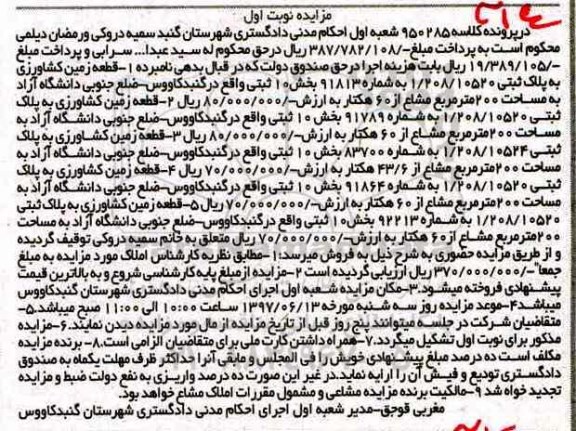 مزایده نوبت اول
درپرونده کلاسه ۹۵۰۲۸۵ شعبه اول احکام مدنی دادگستری شهرستان گنبد سمیه دروکی ورمضان دیلمی
محکوم است به پرداخت مبلغ-/۳۸۷/۷۸۲/۱۰۸ ریال در حق محکوم له سید عبدا... سرابی و پرداخت مبلغ
-/۱۹/۳۸۹/۱۰۵ ریال بابت هزینه اجرا درحق صندوق دولت که در قبال بدهی نامبرده ۱-قطعه زمین کشاورزی
به پلاک ثبتی ۱/۲۰۸/۱۰۵۲۰ به شماره ۹۱۸۱۳۰ بخش ۱۰ ثبتی واقع درگنبدکاووس-ضلع جنوبی دانشگاه آزاد
به مساحت ۲۰۰مترمربع مشاع از ۶۰ هکتار به ارزش-/۸۰/۰۰۰/۰۰۰ ریال ۲-قطعه زمین کشاورزی به پلاک
ثبتی ۱/۲۰۸/۱۰۵۲۰ به شماره ۹۱۷۸۹ بخش ۱۰ ثبتی واقع درگنبدکاووس-ضلع جنوبی دانشگاه آزاد به
مساحت ۲۰۰مترمربع مشاع از ۶۰ هکتار به ارزش-/۸۰/۰۰۰/۰۰۰ ریال ۳-قطعه زمین کشاورزی به پلاک
ثبتی ۱/۲۰۸/۱۰۵۲۴ به شماره ۸۳۷۰۰ بخش ۱۰ ثبتی واقع درگنبدکاووس-ضلع جنوبی دانشگاه آزاد به
مساحت ۲۰۰مترمربع مشاع از ۴۳/۶ هکتار به ارزش-/۷۰/۰۰۰/۰۰۰ ریال ۴-قطعه زمین کشاورزی به پلاک
ثبتی ۱/۲۰۸/۱۰۵۲۰ به شماره ۹۱۸۶۴ بخش ۱۰ ثبتی واقع درگنبدکاووس-ضلع جنوبی دانشگاه آزاد به
مساحت ۲۰۰مترمربع مشاع از ۶۰ هکتار به ارزش-/۷۰/۰۰۰/۰۰۰ ریال ۵-قطعه زمین کشاورزی به پلاک ثبتی
۱/۲۰۸/۱۰۵۲۰ به شماره ۹۲۲۱۳ بخش ۱۰ ثبتی واقع درگنبدکاووس-ضلع جنوبی دانشگاه آزاد به مساحت
۲۰۰مترمربع مشاع از ۶۰ هکتار به ارزش-/۷۰/۰۰۰/۰۰۰ ریال متعلق به خانم سمیه دروکی توقیف گردیده
و از طریق مزایده حضوری به شرح ذیل به فروش میرسد:۱-مطابق نظریه کارشناس املاک مورد مزایده به مبلغ
جمعا"-/۳۷۰/۰۰۰/۰۰۰ ریال ارزیابی گردیده است ۲-مزایده از مبلغ پایه کارشناسی شروع و به بالاترین قیمت
پیشنهادی فروخته میشود.۳-مکان مزایده شعبه اول اجرای احکام مدنی دادگستری شهرستان گنبدکاووس
میباشد۴-موعد مزایده روز سه شنبه مورخه ۱۳۹۷/۰۶/۱۳ ساعت ۱۰:۰۰ الی ۱۱:۰۰ صبح میباشد.۵-
متقاضیان شرکت در جلسه میتوانند پنج روز قبل از تاریخ مزایده از مال مورد مزایده دیدن نمایند.۶-مزایده
مذکور برای نوبت اول تشکیل میگردد.۷-همراه داشتن کارت ملی برای متقاضیان الزامی است.۸-برنده مزایده
مکلف است ده درصد مبلغ پیشنهادی خویش را فی المجلس و مابقی آنرا حداکثر ظرف مهلت یکماه به صندوق
دادگستری تودیع و فیش آن را ارایه نماید.در غیر این صورت ده درصد واریزی به نفع دولت ضبط و مزایده
تجدید خواهد شد ۹-مالکیت برنده مزایده مشاعی و مشمول مقررات املاک مشاع خواهد بود.
مغربی قوجق-مدیر شعبه اول اجرای احکام مدنی دادگستری شهرستان گنبدکاووس